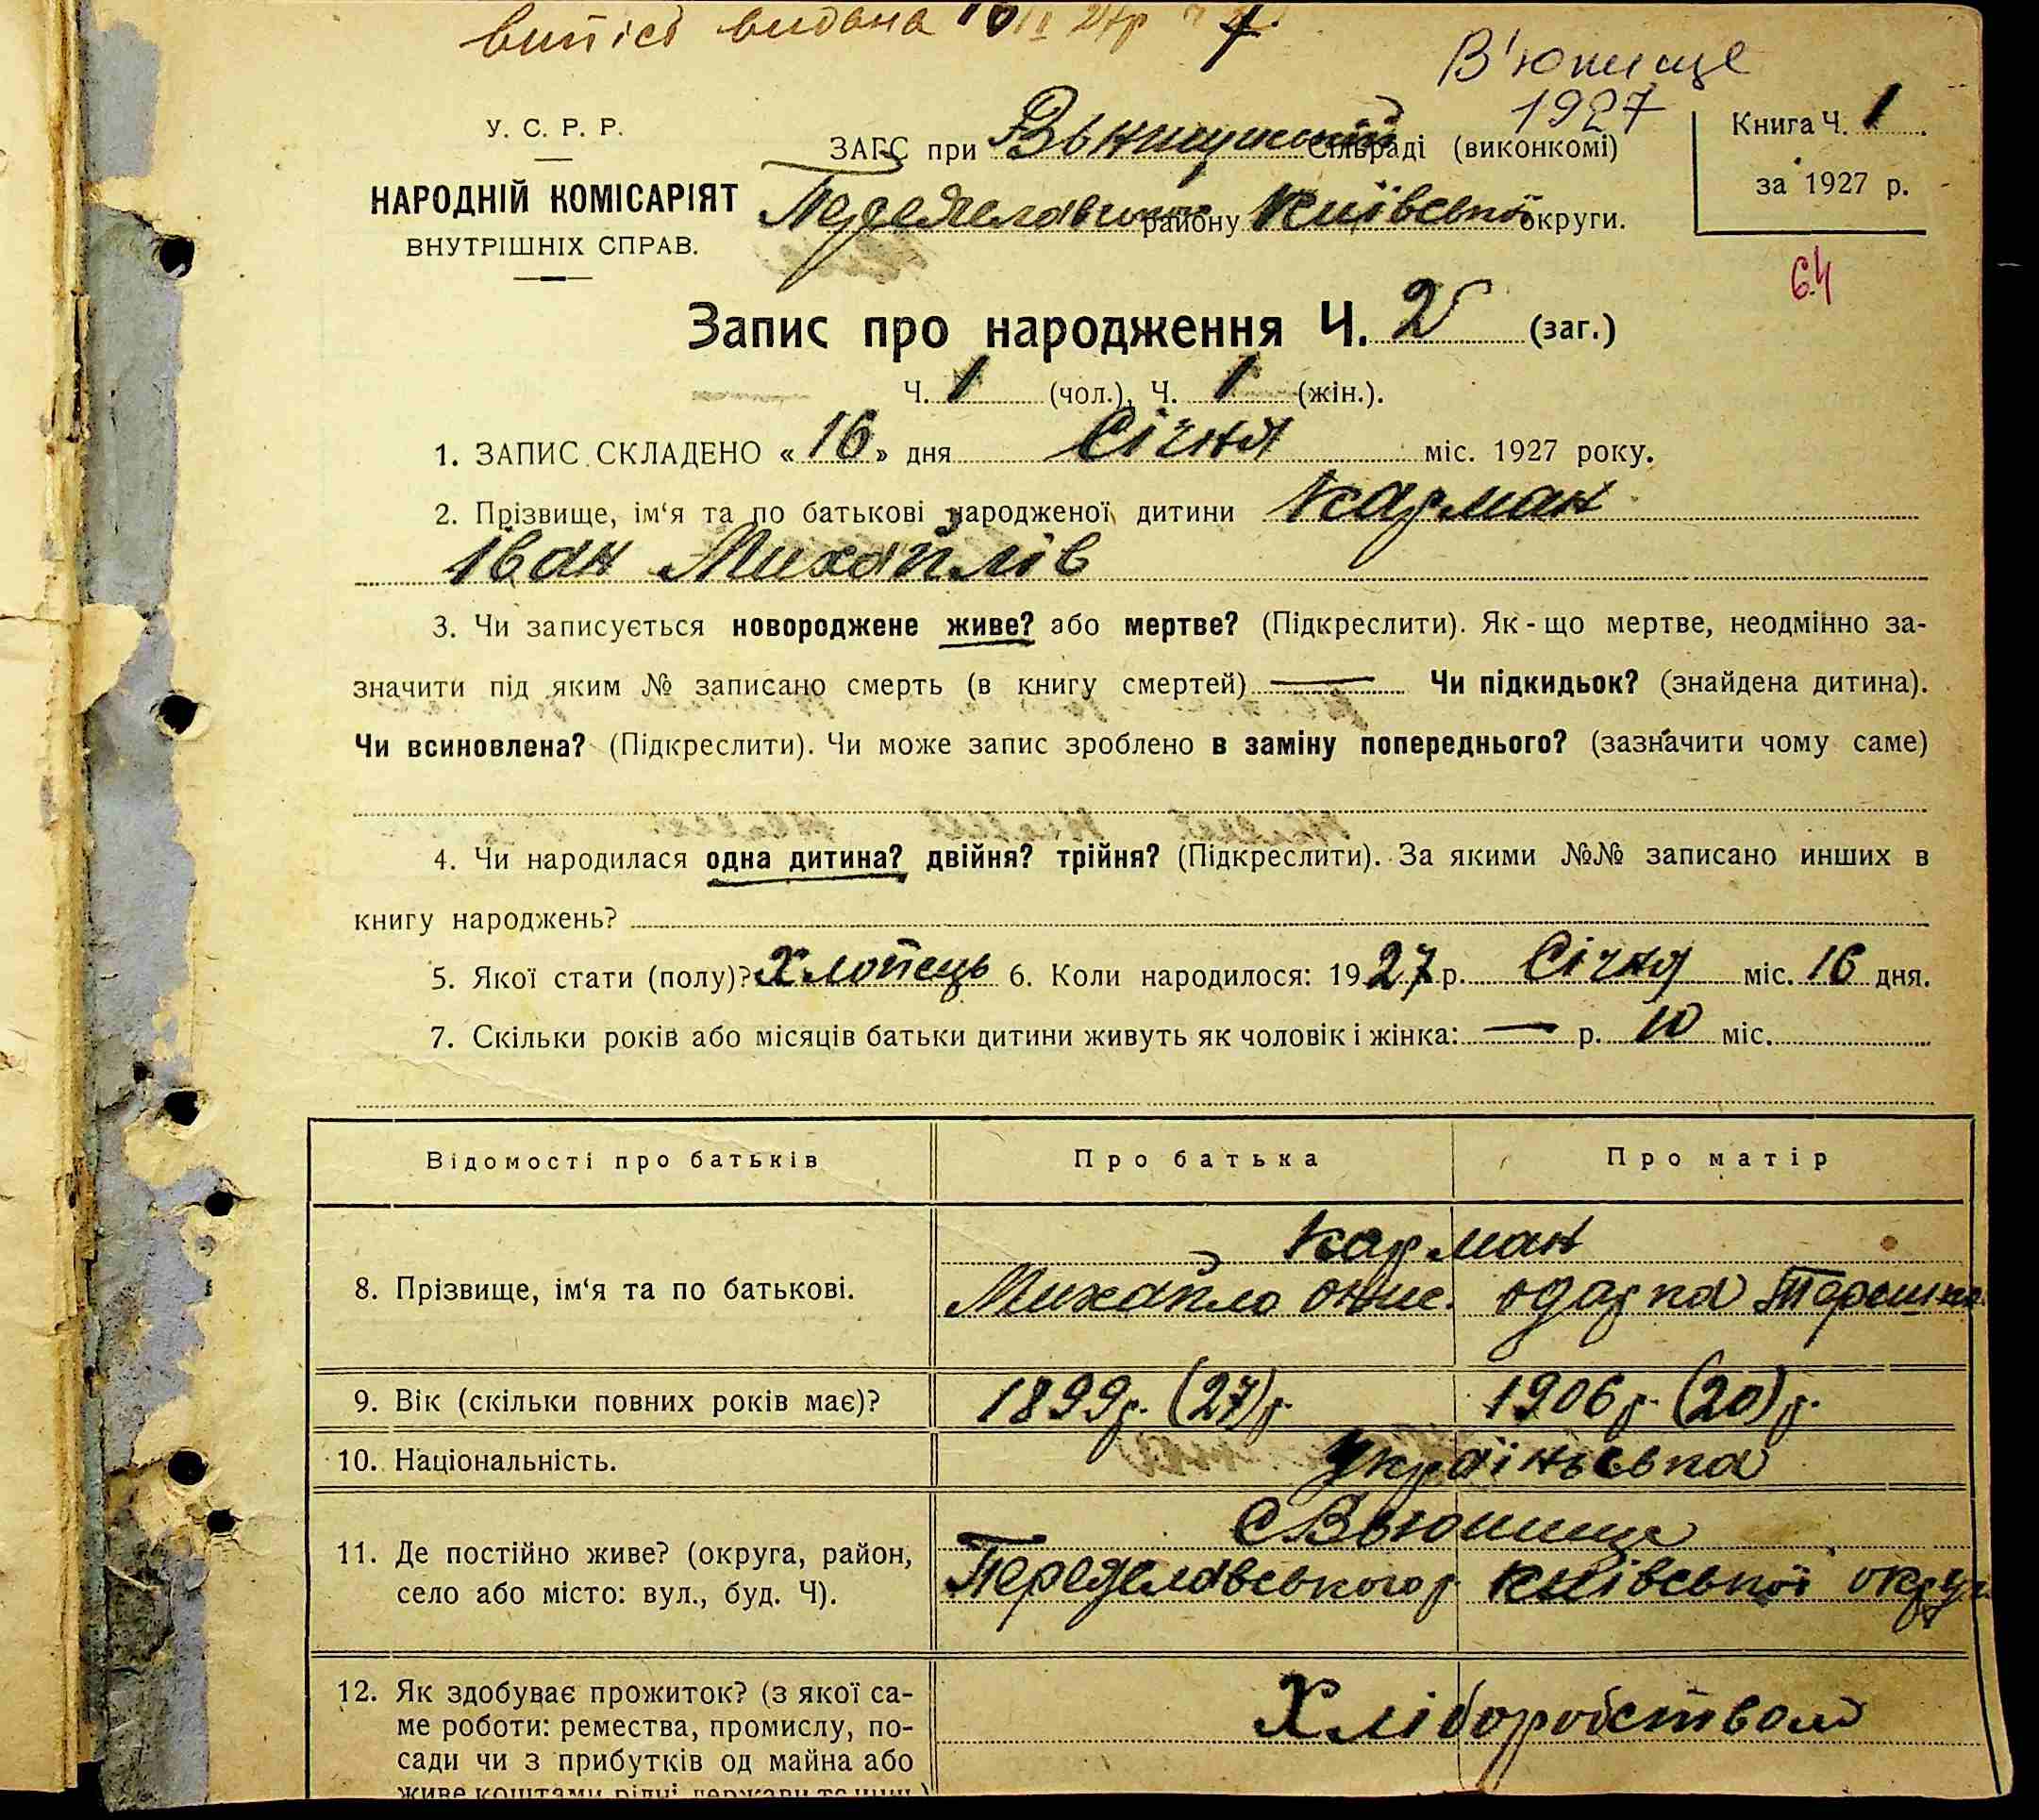 випісь видана
В'юнище
1927
У. С. Р. Р.
НАРОДНІЙ КОМІСАРІЯТ
ВНУТРІШНІХ СПРАВ.
ЗАГС при Вьюнищській Сільраді (виконкомі)
Переяславського району Київської округи.
Книга Ч. 1.
за 1927 р.
64
Запис про народження Ч. 2 (заг.)
Ч. 1 (чол.), Ч. 1 (жін.).
1. ЗАПИС СКЛАДЕНО «16» дня Січня міс. 1927 року.
2. Прізвище, ім‘я та по батькові народженої дитини Карман
Іван Михайлів
3. Чи записується новороджене живе? або мертве? (Підкреслити). Як-що мертве, неодмінно за-
значити під яким № записано смерть (в книгу смертей) — Чи підкидьок? (знайдена дитина).
Чи всиновлена? (Підкреслити). Чи може запис зроблено в заміну попереднього? (зазначити чому саме)
4. Чи народилася одна дитина? двійня? трійня? (Підкреслити). За якими №№ записано инших в
книгу народжень?
5. Якої стати (полу)? Хлопець 6. Коли народилося: 1927 р. Січня міс. 16 дня.
7. Скільки років або місяців батьки дитини живуть як чоловік і жінка: — р. 10 міс.
Відомості про батьків Про батька Про матір
Карман
8. Прізвище, ім‘я та по батькові. Михайло Онис. Одарка
9. Вік (скільки повних років має)? 1899 р. (27) р. 1906 р. (20) р.
10. Національність. Українська
с Вьюнище
11. Де постійно живе? (округа, район,
село або місто: вул., буд. Ч). Переяславського р. Київської округ
12. Як здобуває прожиток? (з якої са-
ме роботи: ремества, промислу, по- Хліборобством
сади чи з прибутків од майна або
живе коштами рідні, держави та инш.)